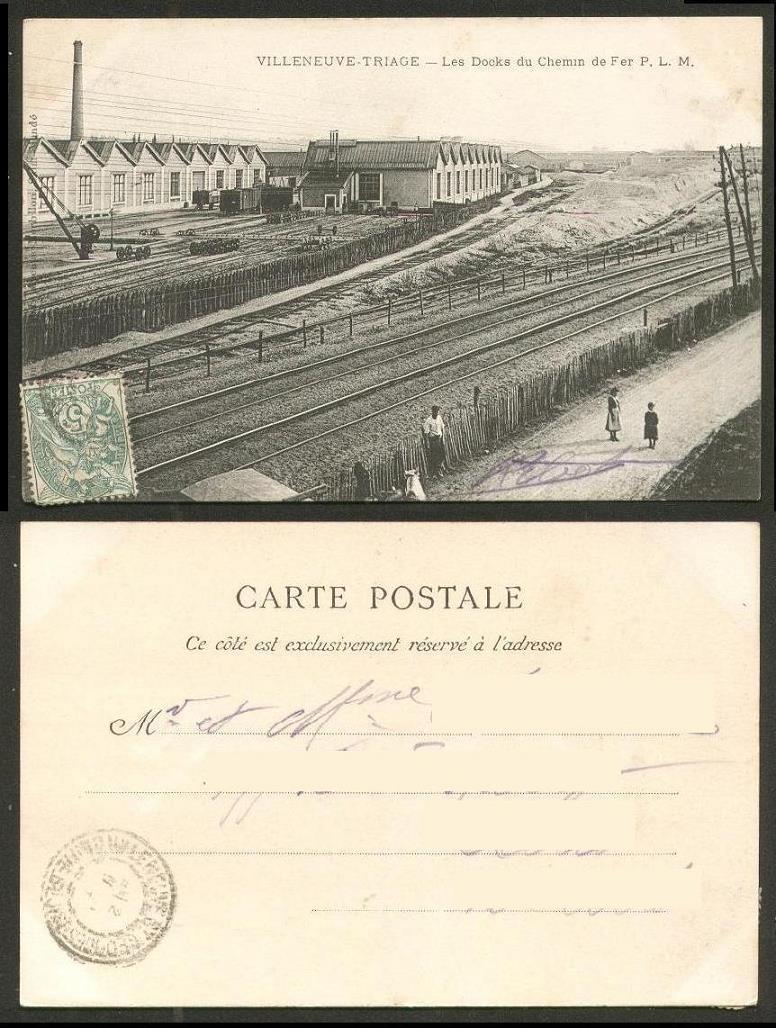 VILLENEUVE-TRIAGE — Les Docks du Chemin de Fer P. L. M.
5
CARTE POSTALE
Ce côté est exclusivement réservé à l'adresse
Mr et Mme